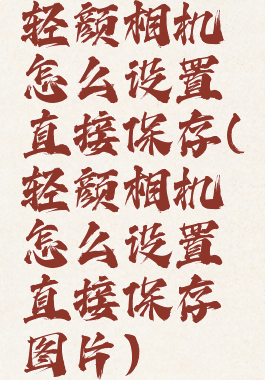 轻颜相机
怎么设置
直接保存(
轻颜相机
怎么设置
直接保存
图片)